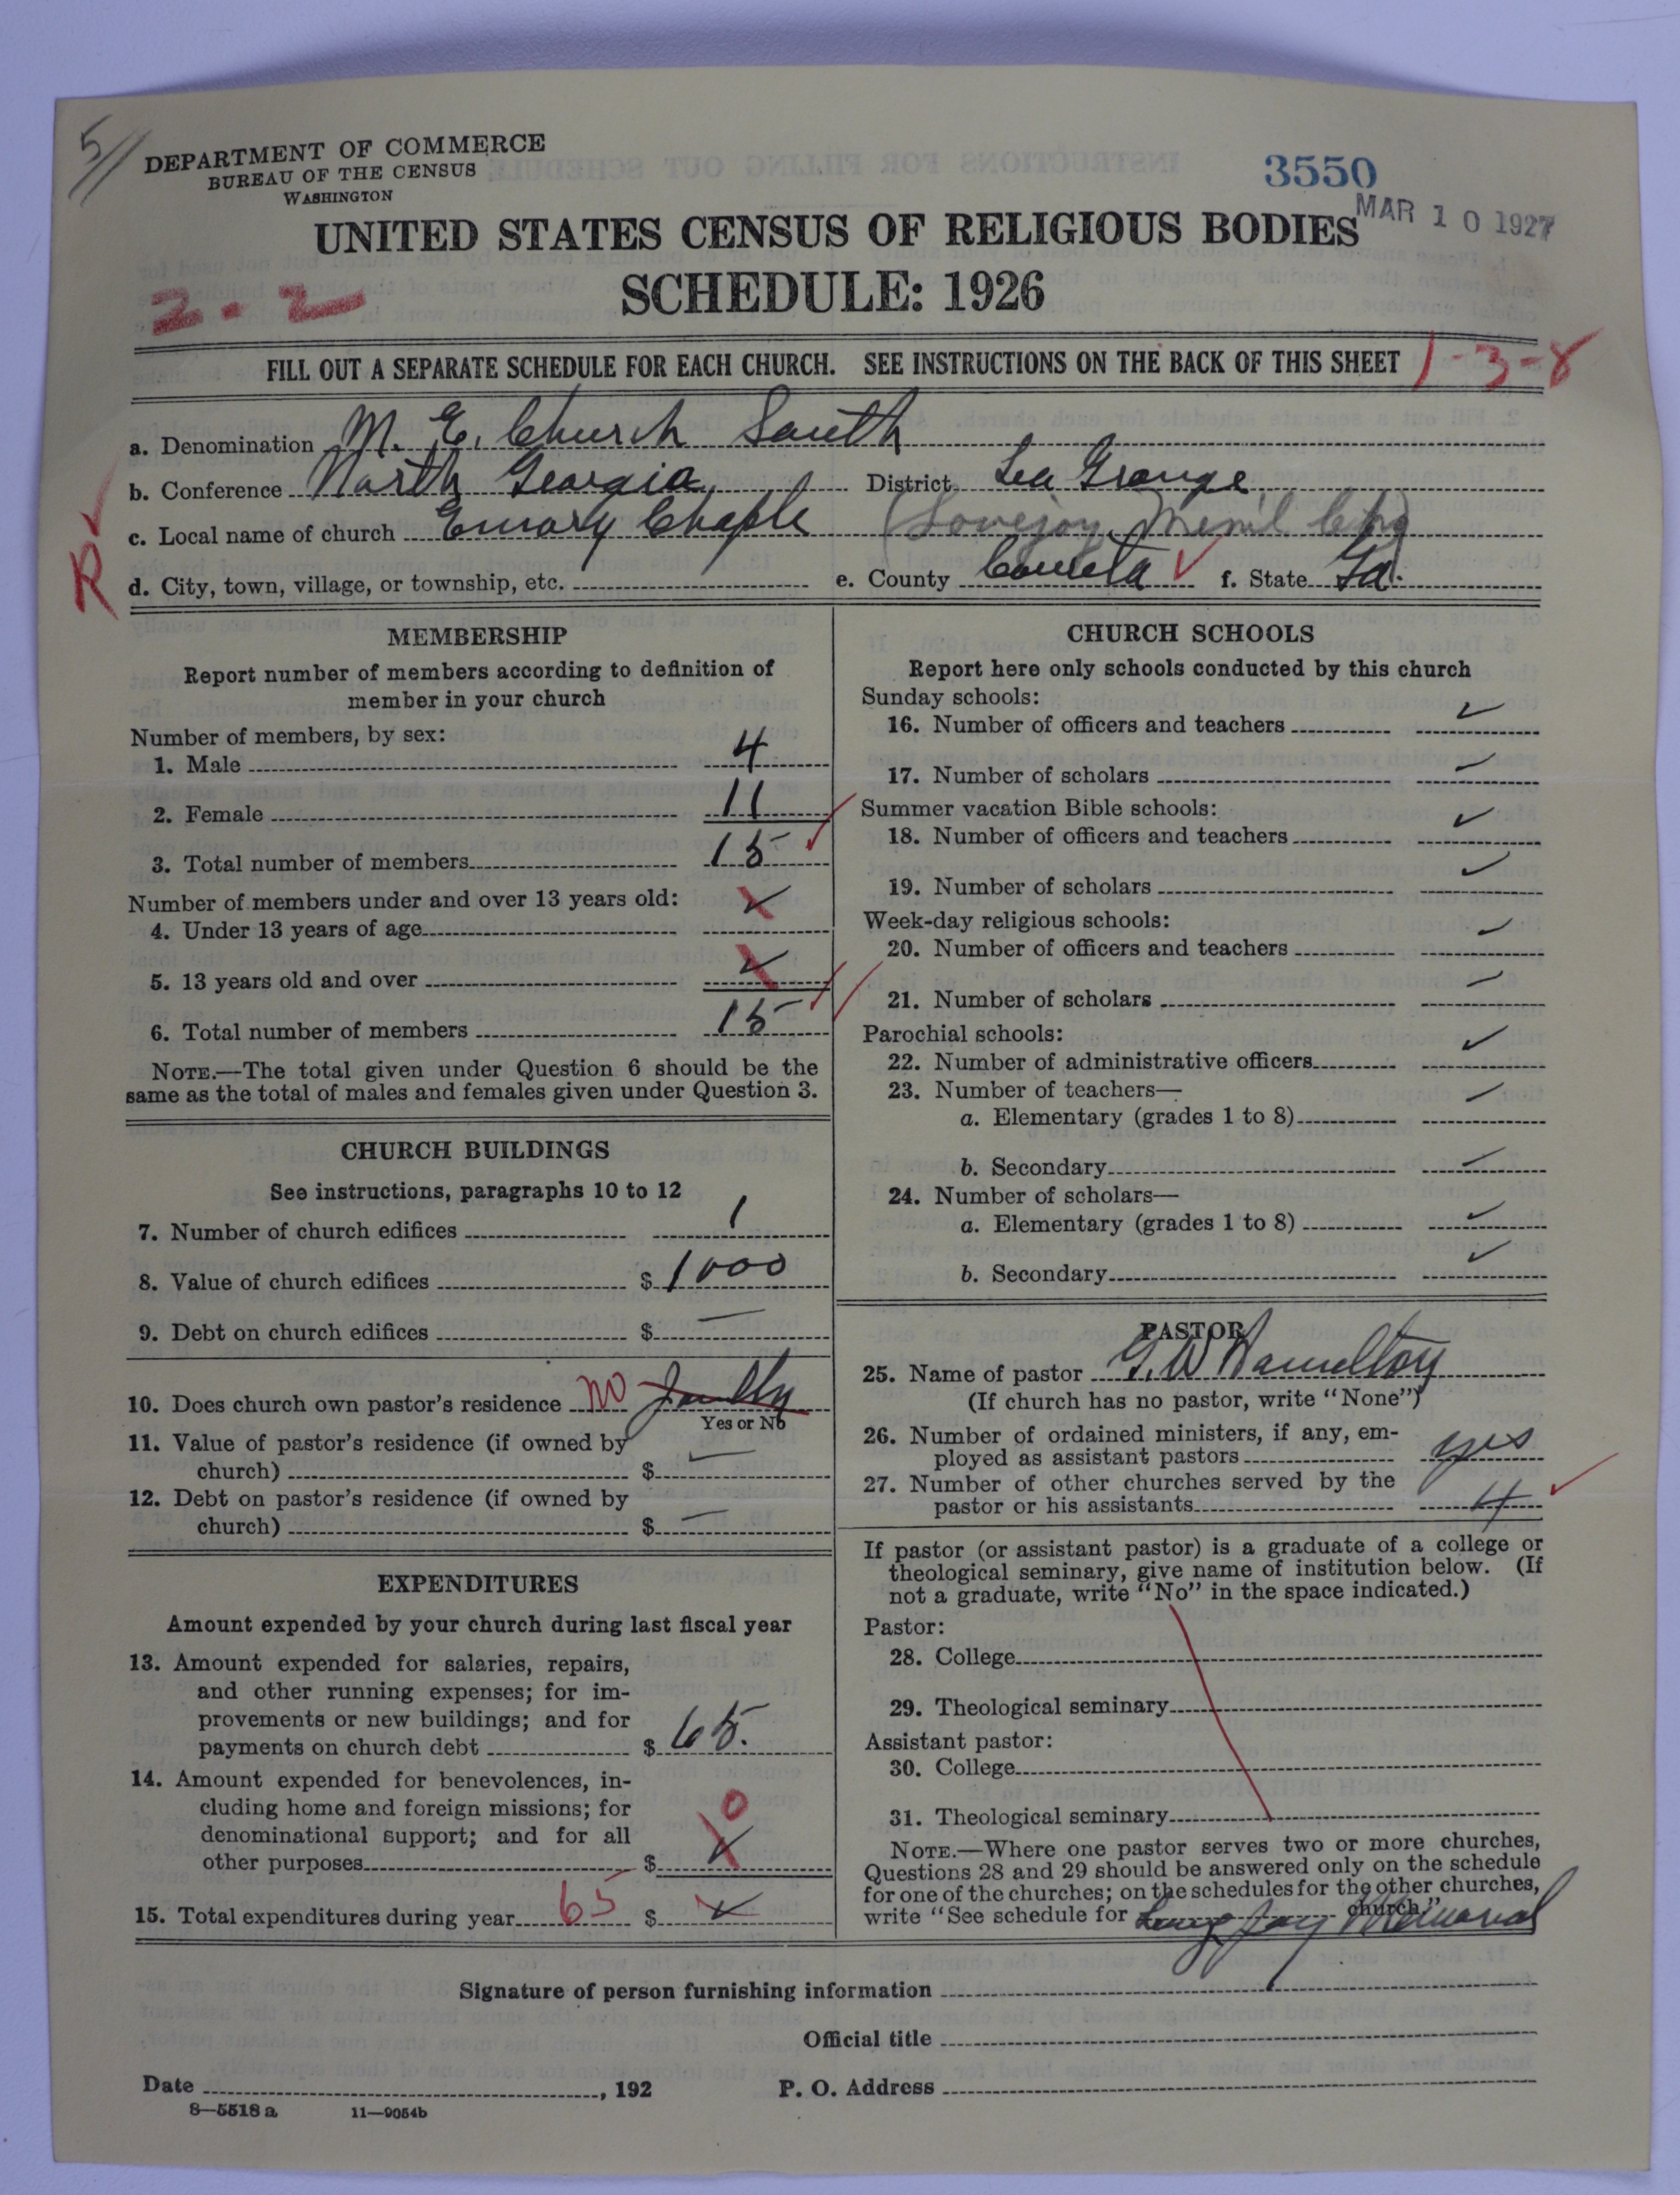 5//
DEPARTMENT OF COMMERCE
BUREAU OF THE CENSUS
WASHINGTON
3550
MAR 10 1927
UNITED STATES CENSUS OF RELIGIOUS BODIES
SCHEDULE: 1926
2-2
FILL OUT A SEPARATE SCHEDULE FOR EACH CHURCH. SEE INSTRUCTIONS ON THE BACK OF THIS SHEET
1-3-8
a. Denomination M. E. Church South
b. Conference North Georgia District La Grange
c. Local name of church Emory Chaple (Lovejoy Mem'l Chg)
R
d. City, town, village, or township, etc. e. County Coweta f. State Ga.
MEMBERSHIP
Report number of members according to definition of
member in your church
Number of members, by sex:
1. Male 4
2. Female 11
3. Total number of members 15
Number of members under and over 13 years old:
4. Under 13 years of age
5. 13 years old and over
6. Total number of members 15
NOTE.—The total given under Question 6 should be the
same as the total of males and females given under Question 3.
CHURCH BUILDINGS
See instructions, paragraphs 10 to 12
7. Number of church edifices 1
8. Value of church edifices $ 1000
9. Debt on church edifices $ —
10. Does church own pastor's residence no
Yes or No
11. Value of pastor's residence (if owned by
church) $ —
12. Debt on pastor's residence (if owned by
church) $ —
EXPENDITURES
Amount expended by your church during last fiscal year
13. Amount expended for salaries, repairs,
and other running expenses; for im-
provements or new buildings; and for
payments on church debt $ 65.
14. Amount expended for benevolences, in-
cluding home and foreign missions; for
denominational support; and for all
other purposes $ 0
15. Total expenditures during year 65 $
CHURCH SCHOOLS
Report here only schools conducted by this church
Sunday schools:
16. Number of officers and teachers
17. Number of scholars
Summer vacation Bible schools:
18. Number of officers and teachers
19. Number of scholars
Week-day religious schools:
20. Number of officers and teachers
21. Number of scholars
Parochial schools:
22. Number of administrative officers
23. Number of teachers—
a. Elementary (grades 1 to 8)
b. Secondary
24. Number of scholars—
a. Elementary (grades 1 to 8)
b. Secondary
PASTOR
25. Name of pastor G. W. Hamilton
(If church has no pastor, write "None")
26. Number of ordained ministers, if any, em-
ployed as assistant pastors yes
27. Number of other churches served by the
pastor or his assistants 4
If pastor (or assistant pastor) is a graduate of a college or
theological seminary, give name of institution below. (If
not a graduate, write "No" in the space indicated.)
Pastor:
28. College
29. Theological seminary
Assistant pastor:
30. College
31. Theological seminary
NOTE.—Where one pastor serves two or more churches,
Questions 28 and 29 should be answered only on the schedule
for one of the churches; on the schedules for the other churches,
write "See schedule for Memorial church."
Signature of person furnishing information
Official title
Date , 192 P. O. Address
8—5518 a 11—9054b